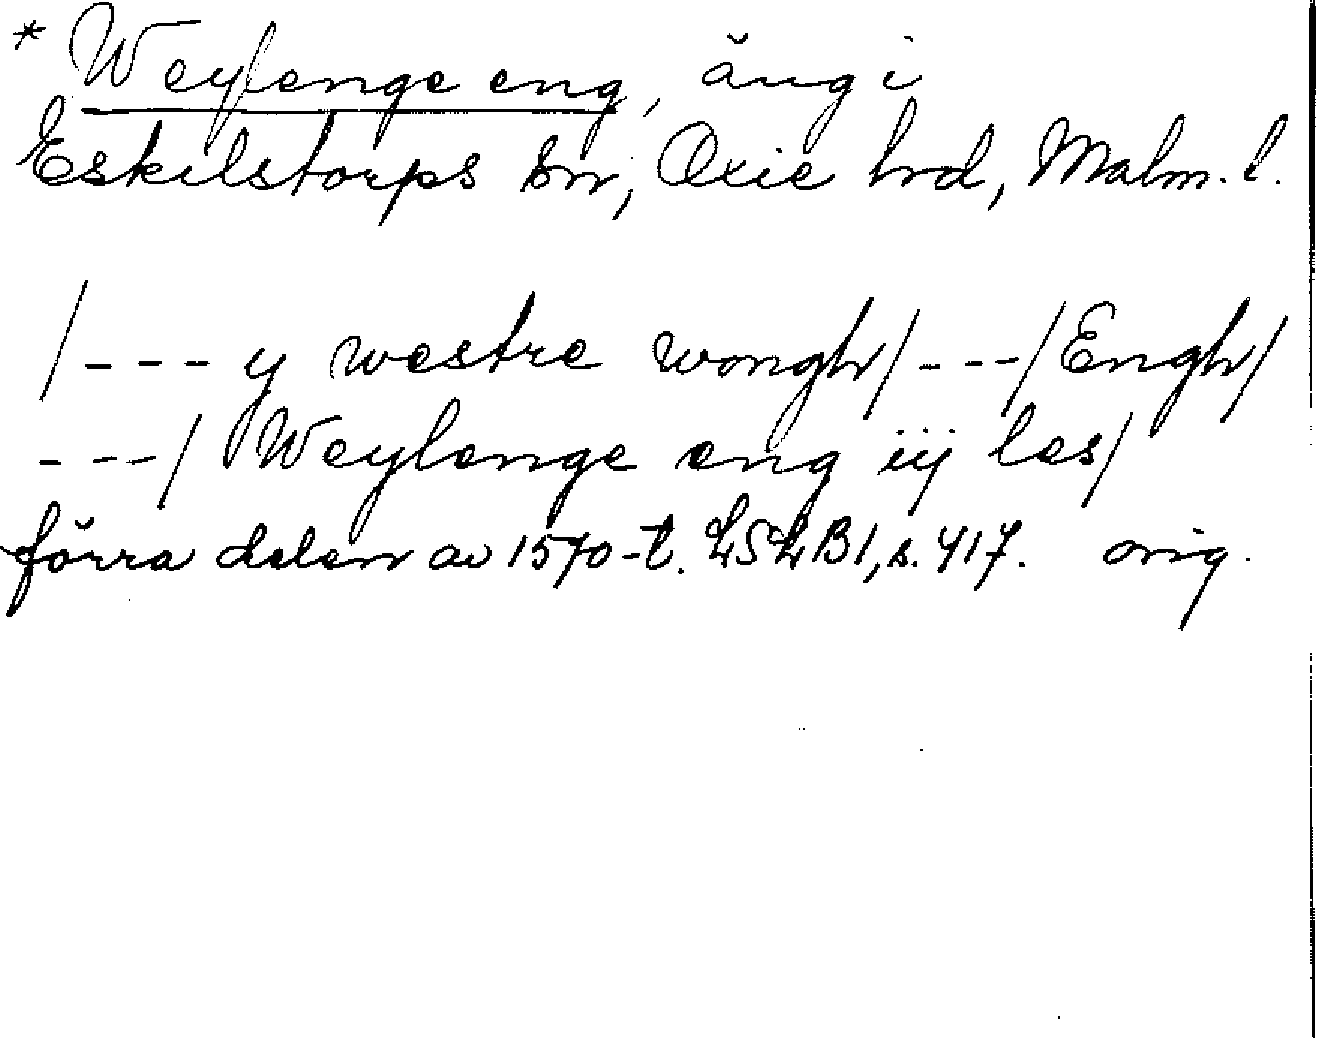 * Weylenge eng, äng i
Eskilstorps sn, Oxie hrd, Malm. l.
/--- y westre wongh/---/Engh/
---/ Weylenge eng iij les/
förra delen av 1570-t. LSLB1, s. 417. orig.